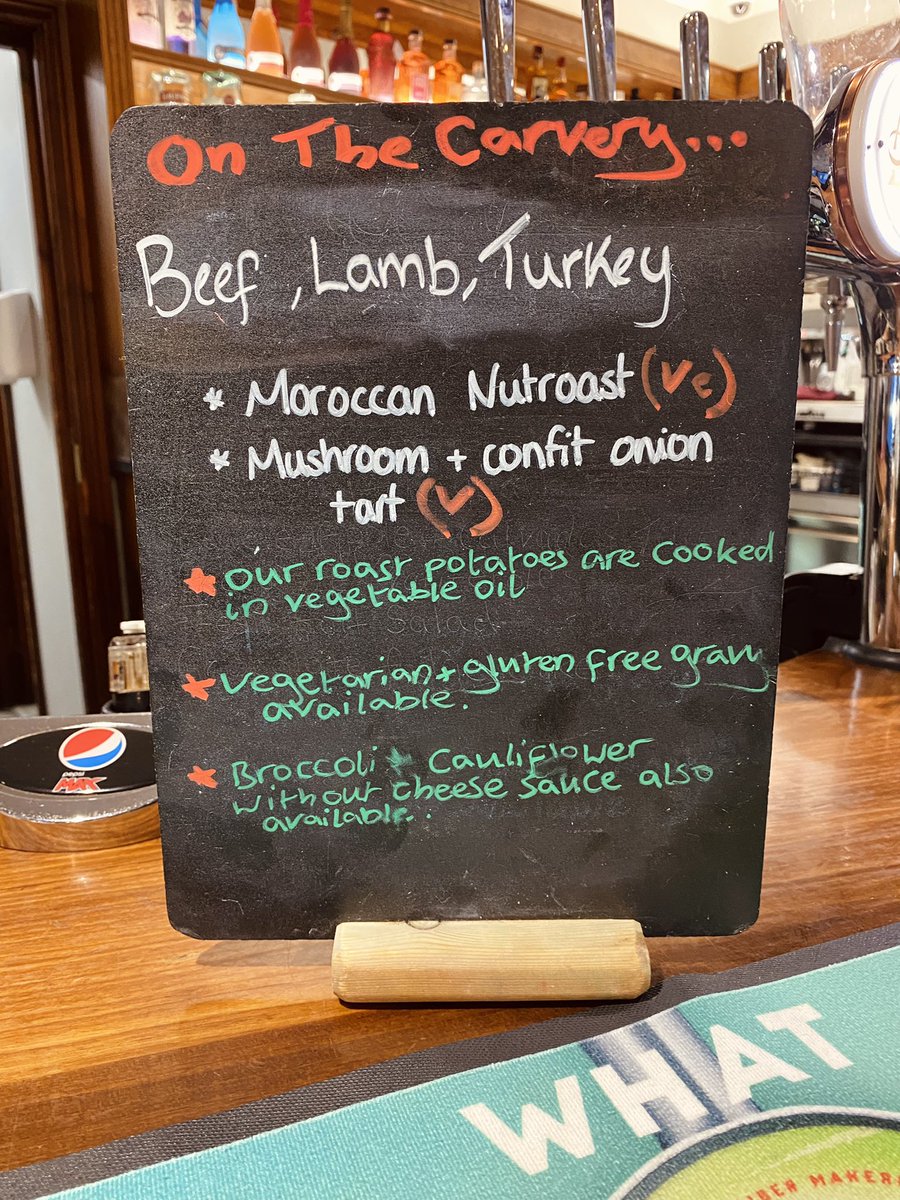 On The Carvery...
Beef, Lamb, Turkey
* Moroccan Nutroast (Ve)
* Mushroom + confit onion
tart (V)
★ Our roast potatoes are cooked
in vegetable oil
salad
★ Vegetarian + gluten free gravy
available.
★ Broccoli + Cauliflower
without cheese sauce also
available.
pepsi
MAX
WHAT
BER MAKERS